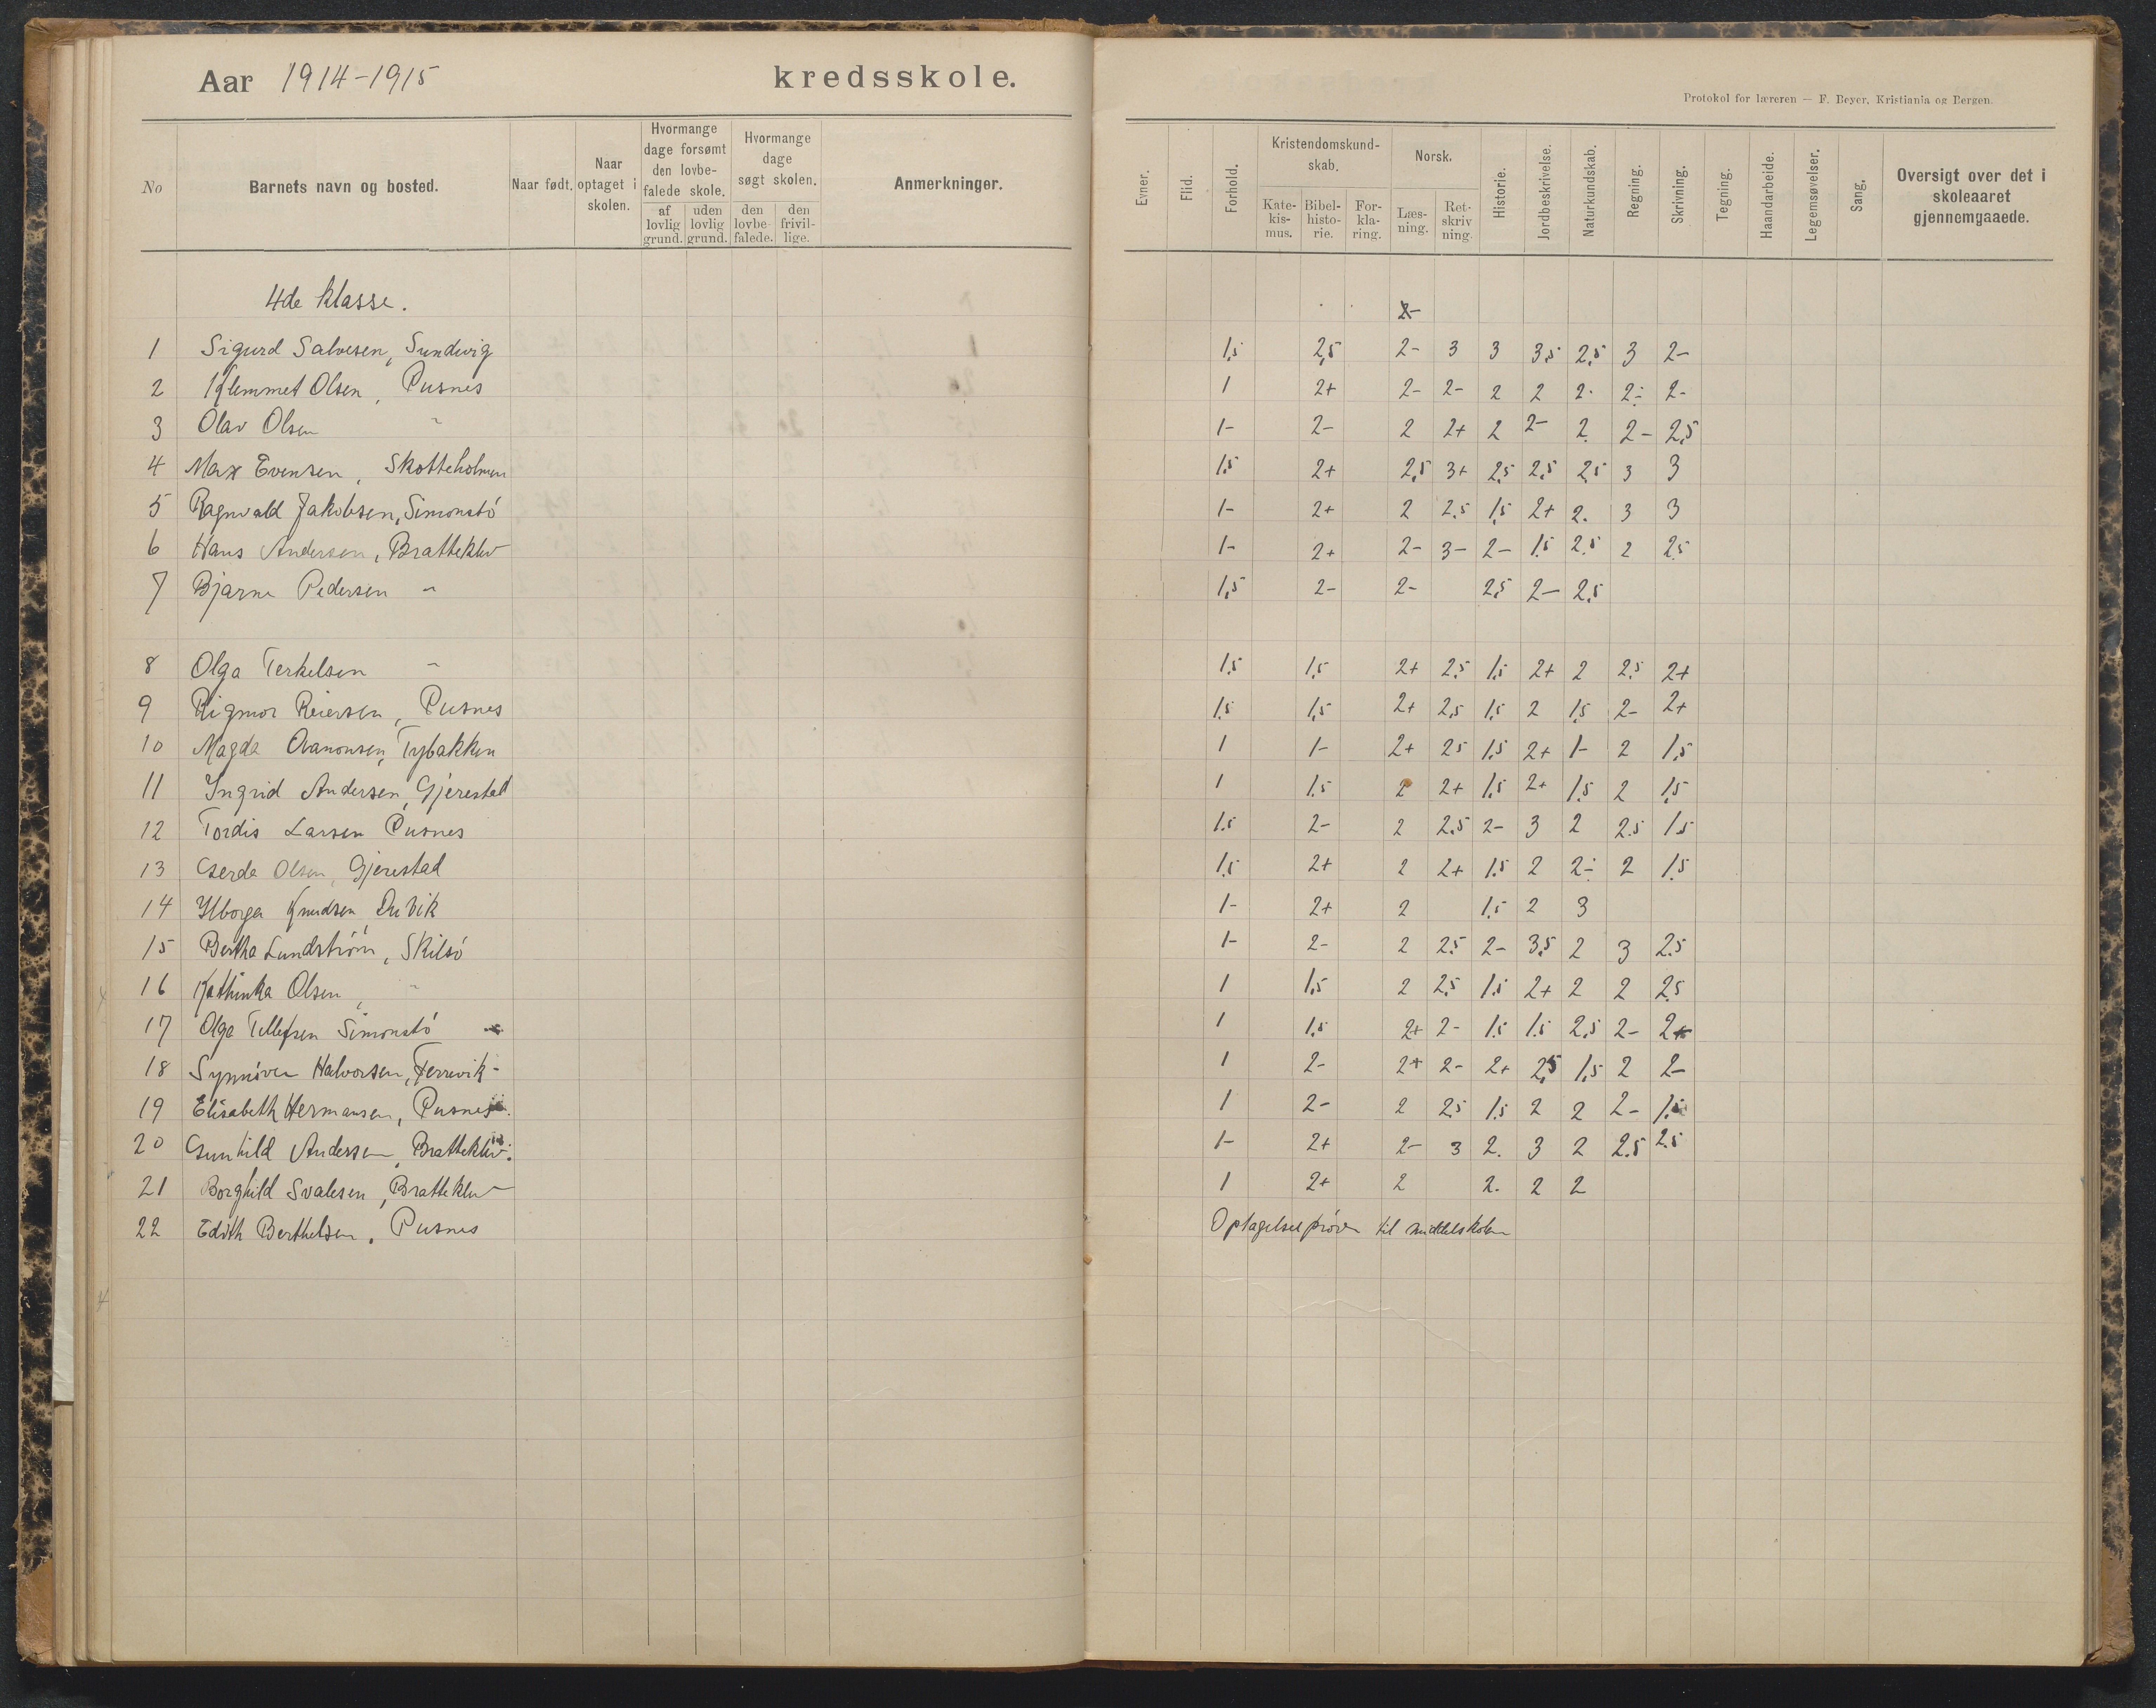 Aar 1914-1915 kredsskole.
Protokol for læreren — F. Beyer, Kristiania og Bergen.
No Barnets navn og bosted. Naar født. Naar optaget i skolen. Hvormange dage forsømt den lovbefalede skole. af lovlig grund. uden lovlig grund. Hvormange dage søgt skolen. den lovbefalede. den frivillige. Anmerkninger.
Evner. Flid. Forhold. Kristendomskundskab. Katekismus. Bibelhistorie. Forklaring. Norsk. Læsning. Retskrivning. Historie. Jordbeskrivelse. Naturkundskab. Regning. Skrivning. Tegning. Haandarbeide. Legemsøvelser. Sang. Oversigt over det i skoleaaret gjennemgaaede.
4de klasse.
1 Sigurd Salvesen, Sundvig 1,5 2,5 2- 3 3 3,5 2,5 3 2-
2 Klemmet Olsen, Pusnes 1 2+ 2- 2- 2 2 2- 2- 2-
3 Olav Olsen " 1- 2- 2 2+ 2 2- 2 2- 2,5
4 Max Evensen, Skotteholmen 1,5 2+ 2,5 3+ 2,5 2,5 2,5 3 3
5 Ragnvald Jakobsen, Simonstö 1- 2+ 2 2,5 1,5 2+ 2. 3 3
6 Hans Andersen, Bratteklev 1- 2+ 2- 3- 2- 1,5 2,5 2 2,5
7 Bjarne Pedersen " 1,5 2- 2- 2,5 2- 2,5
8 Olga Terkelsen " 1,5 1,5 2+ 2,5 1,5 2+ 2 2,5 2+
9 Rigmor Reiersen, Pusnes 1,5 1,5 2+ 2,5 1,5 2 1,5 2- 2+
10 Magda Tybakken 1 1- 2+ 2,5 1,5 2+ 1- 2 1,5
11 Ingrid Andersen, Gjerestad 1 1,5 2 2+ 1,5 2+ 1,5 2 1,5
12 Tordis Larsen Pusnes 1,5 2- 2 2,5 2- 3 2 2,5 1,5
13 Gerda Olsen, Gjerestad 1,5 2+ 2 2+ 1,5 2 2- 2 1,5
14 Knudsen 1- 2+ 2 1,5 2 3
15 Bertha Lundström, Skilsö 1- 2- 2 2,5 2- 3,5 2 3 2,5
16 Kathinka Olsen, " 1 1,5 2 2,5 1,5 2+ 2 2 2,5
17 Olga Tellefsen Simonstö 1 1,5 2+ 2- 1,5 1,5 2,5 2- 2+
18 Synnöve Halvorsen, Ferrevik 1 2- 2+ 2- 2+ 2,5 1,5 2 2-
19 Elisabeth Hermansen, Pusnes. 1 2- 2 2,5 1,5 2 2 2- 1,5
20 Gunhild Andersen, Bratteklev. 1- 2+ 2- 3 2. 3 2 2,5 2,5
21 Borghild Svalesen, Bratteklev 1 2+ 2 2. 2 2
22 Edith Berthelsen, Pusnes Optagelsespröve til middelskolen